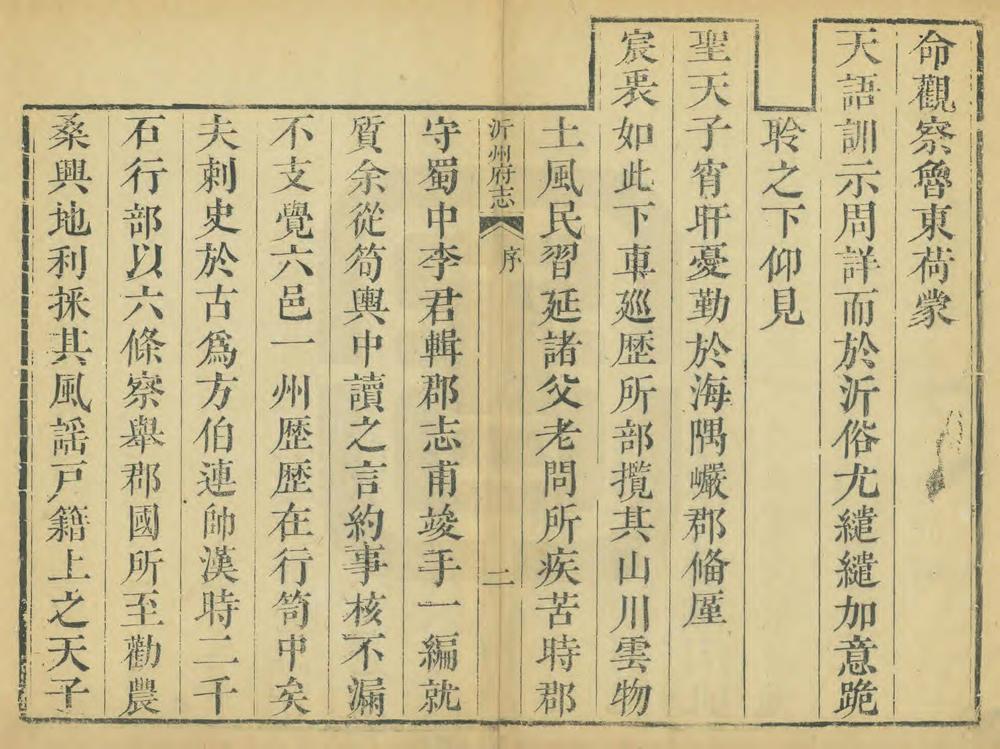 命觀察魯東荷蒙
天語訓示周詳而於沂俗尤繾繾加意跪
聆之下仰見
聖天子宵旰憂勤於海隅巖郡俻厪
宸衷如此下車廵歴所部攬其山川雲物
土風民習延諸父老問所疾苦時郡
沂州府志
序
二
守蜀中李君輯郡志甫竣手一編就
質余從筍輿中讀之言約事核不漏
不支覺六邑一州歴歴在行笥中矣
夫刺史於古爲方伯連帥漢時二千
石行部以六條察舉郡國所至勸農
桑興地利採其風謡戸籍上之天子